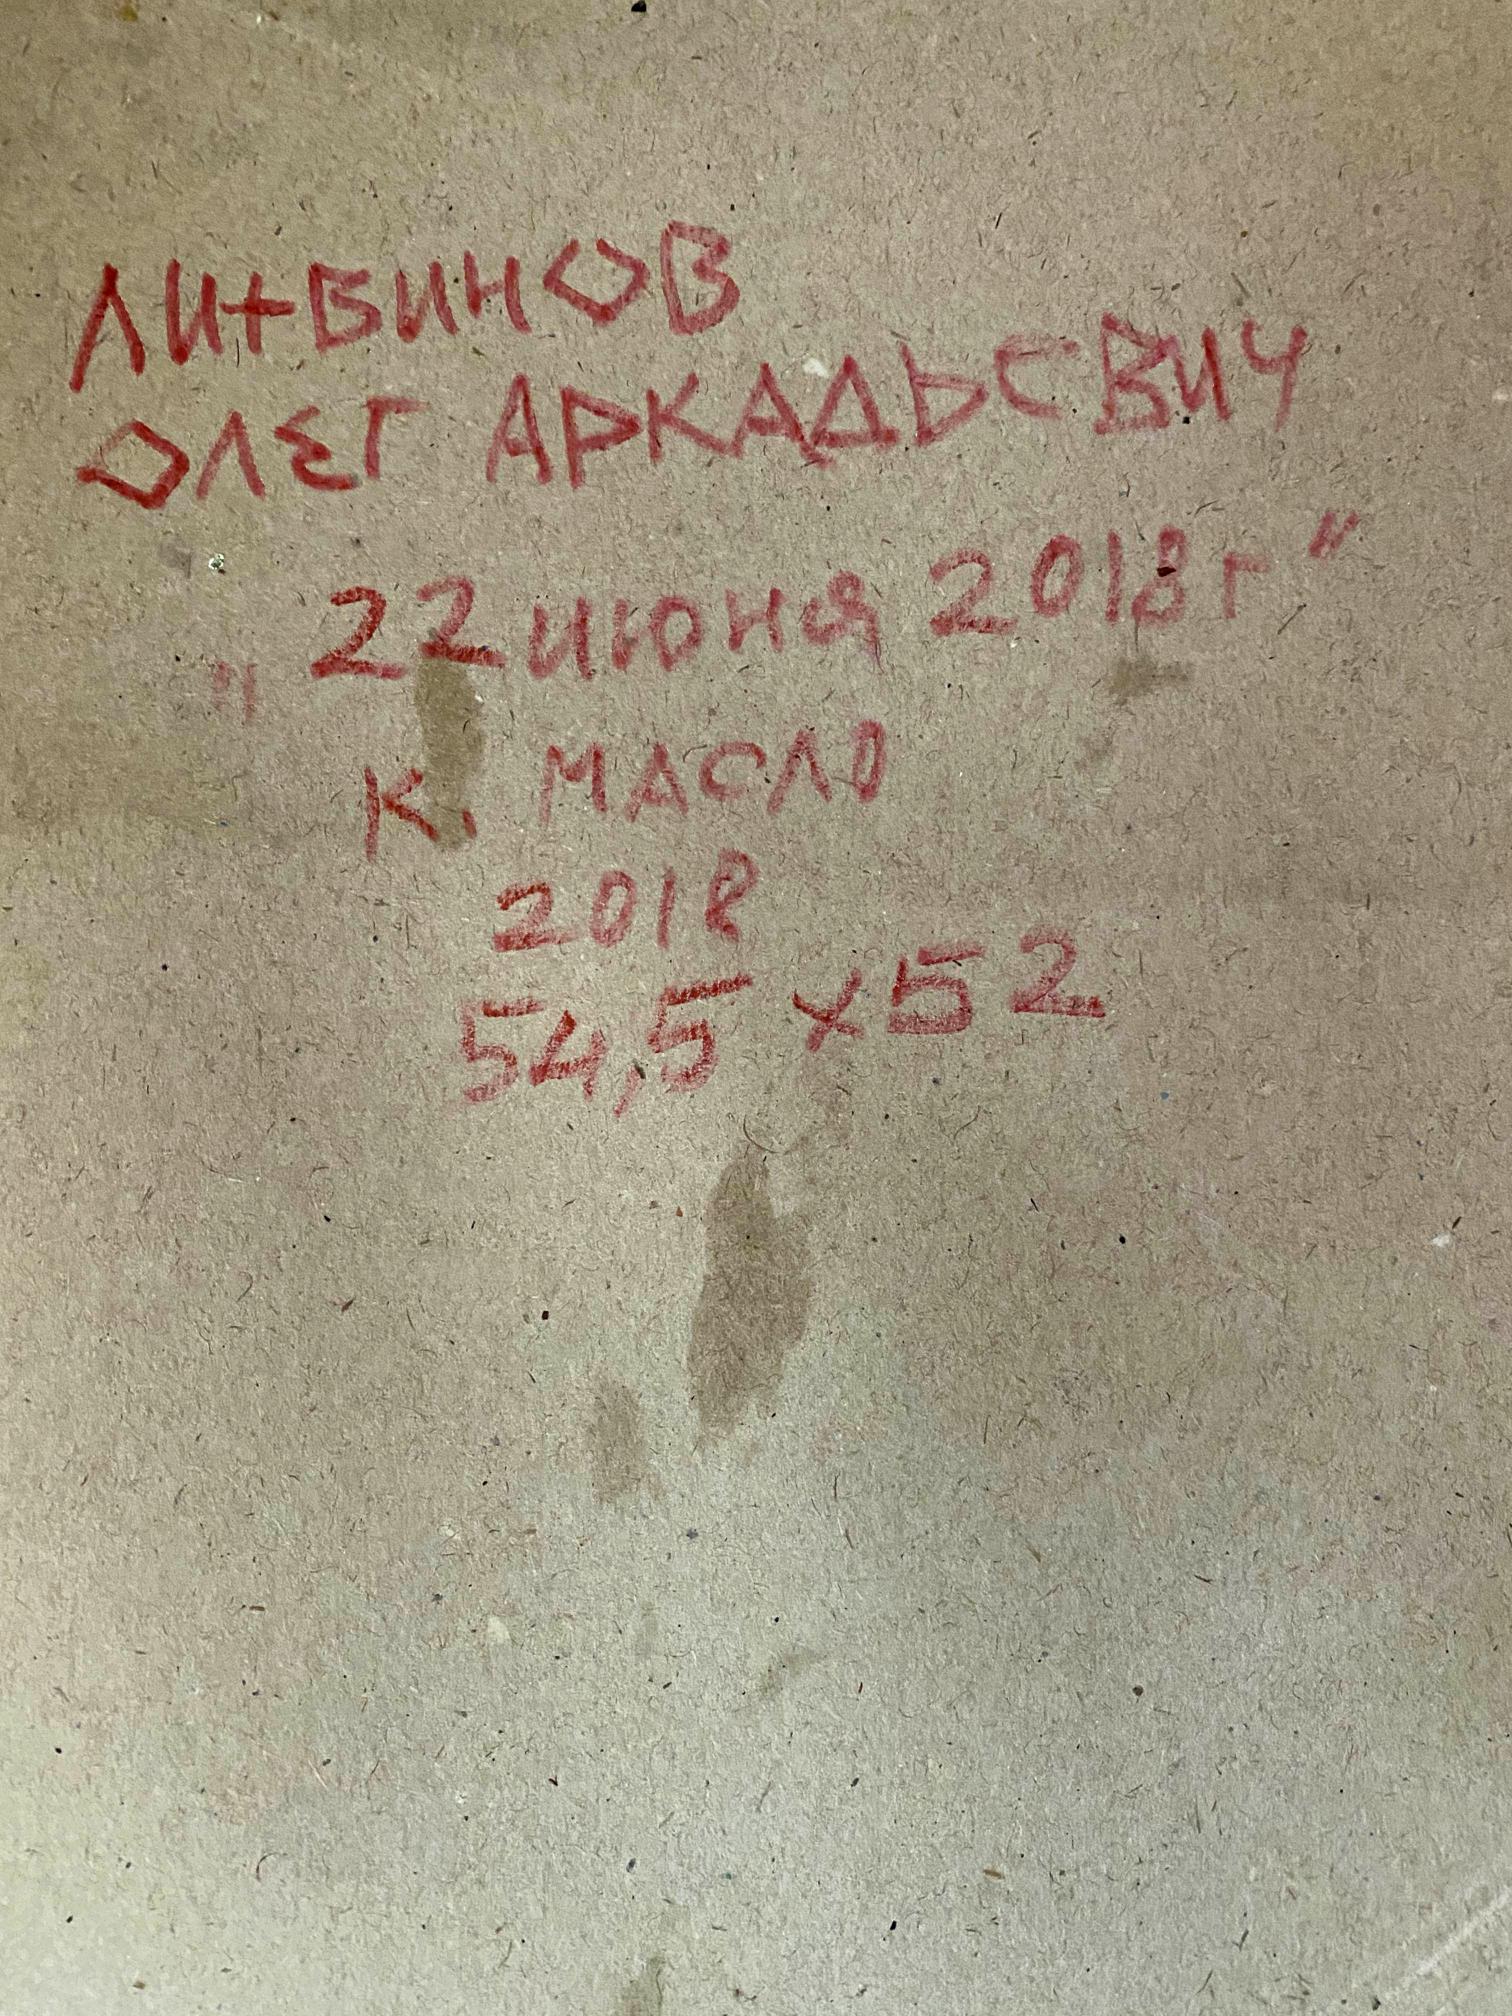 ЛИТВИНОВ
ОЛЕГ АРКАДЬЕВИЧ
„22 июня 2018г"
К. МАСЛО
2018
54,5 х 52